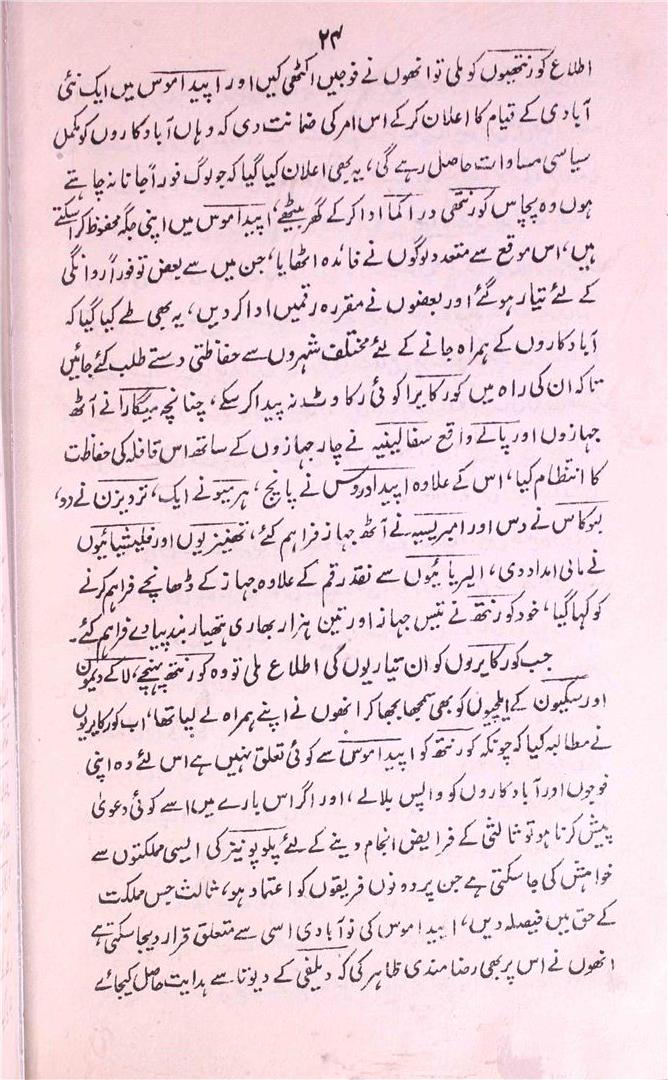 ۲۴
اطلاع کورنتھیوں کو ملی تو انھوں نے فوجیں اکٹھی کیں اور اپیداموس میں ایک نئی
آبادی کے قیام کا اعلان کرکے اس امر کی ضمانت دی کہ وہاں آبادکاروں کو مکمل
سیاسی مساوات حاصل رہے گی، یہ بھی اعلان کیا گیا کہ جو لوگ فوراً جانا نہ چاہتے
ہوں وہ پچاس کورنتھی دراکما ادا کرکے گھر بیٹھے، اپیداموس میں اپنی جگہ محفوظ کراسکتے
ہیں، اس موقع سے متعدد لوگوں نے فائدہ اٹھایا، جن میں سے بعض تو فوراً روانگی
کے لئے تیار ہوگئے اور بعضوں نے مقررہ رقمیں ادا کردیں، یہ بھی طے کیا گیا کہ
آبادکاروں کے ہمراہ جانے کے لئے مختلف شہروں سے حفاظتی دستے طلب کئے جائیں
تاکہ ان کی راہ میں کورکایرا کوئی رکاوٹ نہ پیدا کرسکے، چنانچہ میگارا نے آٹھ
جہازوں اور پالے واقع سفالینیہ نے چار جہازوں کے ساتھ اس قافلہ کی حفاظت
کا انتظام کیا، اس کے علاوہ اپیداروس نے پانچ، ہرمیو نے ایک، تروئیزن نے دو،
لیوکاس نے دس اور امبریسیہ نے آٹھ جہاز فراہم کئے، تھیبزیوں اور فلیشیائیوں
نے مالی امداد دی، الیریائیوں سے نقد رقم کے علاوہ جہاز کے ڈھانچے فراہم کرنے
کو کہا گیا، خود کورنتھ نے تیس جہاز اور تین ہزار بھاری ہتھیار بند پیادے فراہم کئے۔
جب کورکایروں کو ان تیاریوں کی اطلاع ملی تو وہ کورنتھ پہنچے، لاکے دیمون
اور سکیون کے ایلچیوں کو بھی سمجھا بجھا کر انھوں نے اپنے ہمراہ لے لیا تھا، اب کورکایریوں
نے مطالبہ کیا کہ چونکہ کورنتھ کو اپیداموس سے کوئی تعلق نہیں ہے اس لئے وہ اپنی
فوجوں اور آبادکاروں کو واپس بلالے، اور اگر اس بارے میں اسے کوئی دعویٰ
پیش کرنا ہو تو ثالثی کے فرایض انجام دینے کے لئے پلوپونیز کی ایسی مملکتوں سے
خواہش کی جاسکتی ہے جن پر دونوں فریقوں کو اعتماد ہو، ثالث جس مملکت
کے حق میں فیصلہ دیں، اپیداموس کی نوآبادی اسی سے متعلق قرار دیجاسکتی ہے
انھوں نے اس پر بھی رضامندی ظاہر کی کہ دیلفی کے دیوتا سے ہدایت حاصل کیجائے